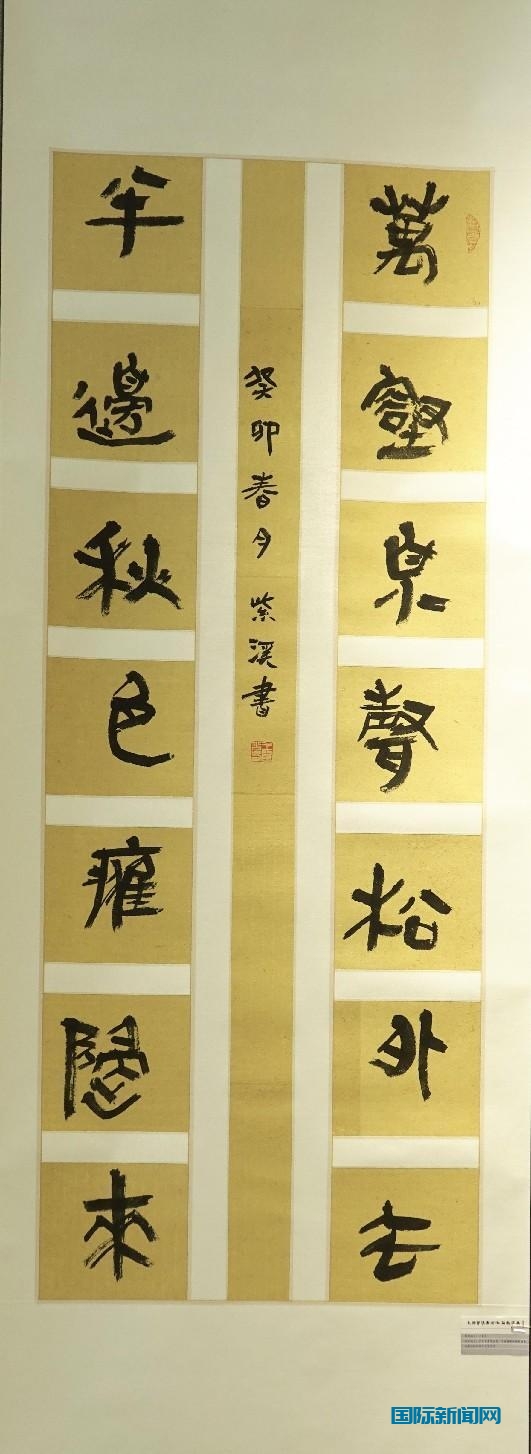 萬壑泉聲松外去
半邊秋色隱來
癸卯春月 紫溪書
国际新闻网